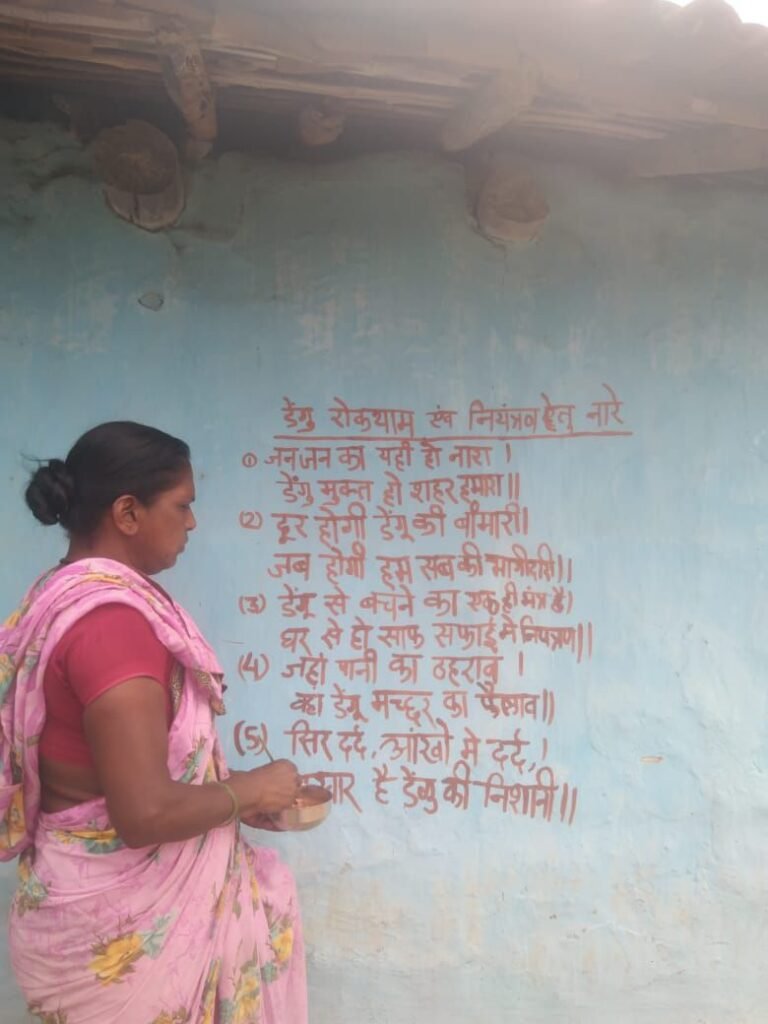 डेंगु रोकथाम एंव नियंत्रव हेतू नारे
① जन जन का यही हो नारा ।
डेंगु मुक्त हो शहर हमारा ॥
(2) दूर होगी डेंगू की बीमारी।
जब होगी हम सब की भागीदारी।।
(3) डेंगू से बचने का एक ही मंत्र है।
घर से हो साफ सफाई मे नियत्रण।।
(4) जहां पानी का ठहराव ।
वहां डेंगू मच्छर का फैलाव।।
(5) सिर दर्द, आंखो मे दर्द, ।
है डेंगु की निशानी।।